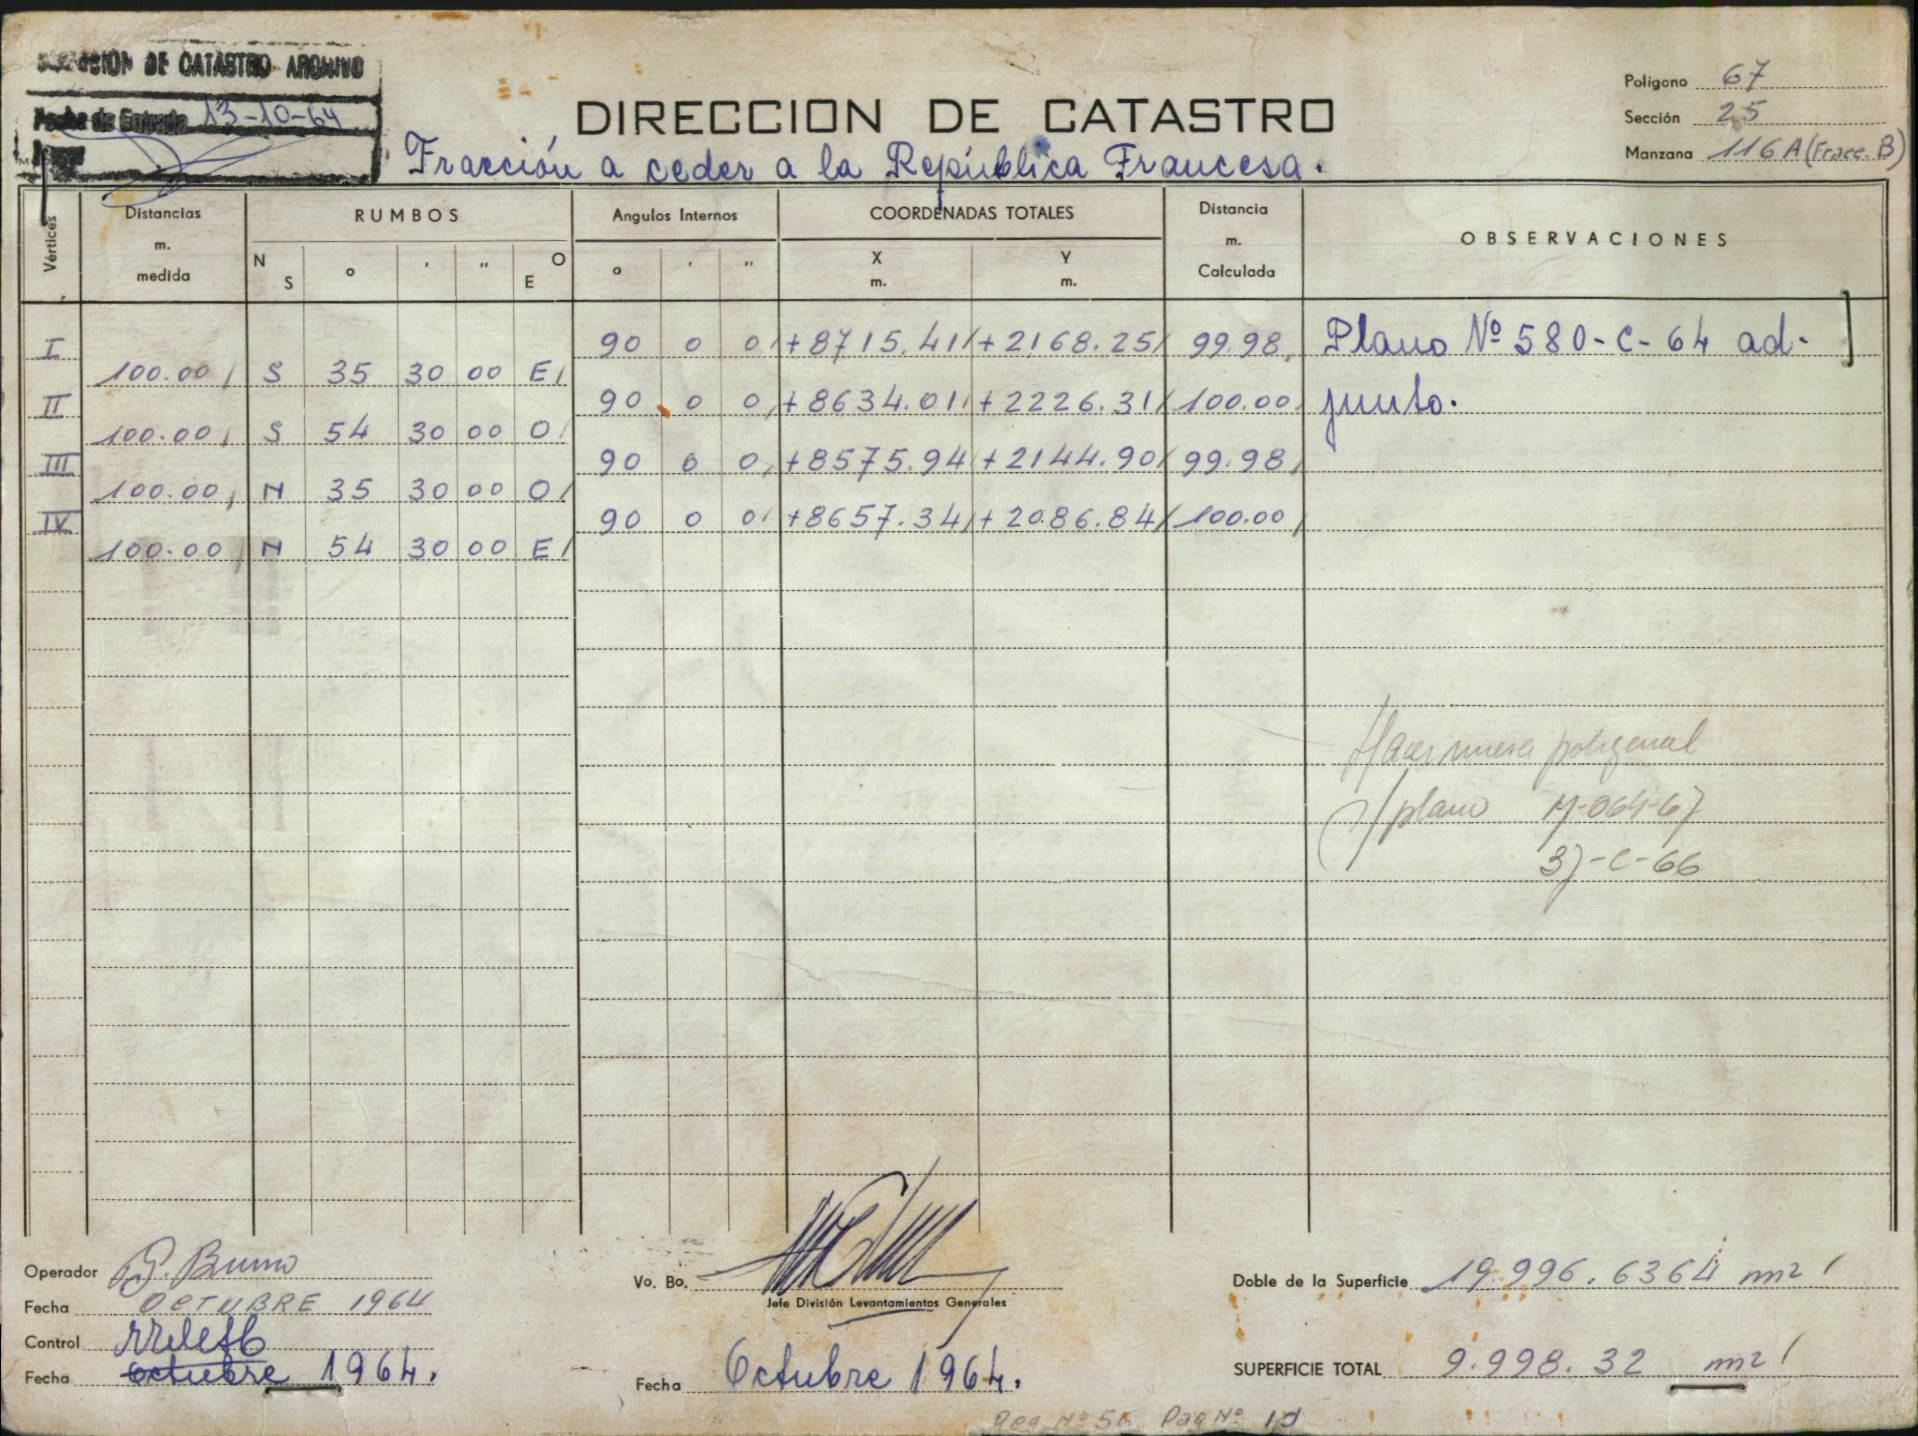 DIRECCION DE CATASTRO ARCHIVO
Fecha de Entrada 13-10-64
DIRECCION DE CATASTRO
Fracción a ceder a la República Francesa.
Polígono 67
Sección 25
Manzana 116 A (Fracc. B)
Vértices
Distancias m. medida
RUMBOS
N S ° ' " O E
Angulos Internos
° ' "
COORDENADAS TOTALES
X m. Y m.
Distancia m. Calculada
OBSERVACIONES
I 90 0 0 +8715.41 +2168.25 99.98 Plano Nº 580-C-64 ad-
100.00 S 35 30 00 E
II 90 0 0 +8634.01 +2226.31 100.00 junto.
100.00 S 54 30 00 O
III 90 0 0 +8575.94 +2144.90 99.98
100.00 N 35 30 00 O
IV 90 0 0 +8657.34 +2086.84 100.00
100.00 N 54 30 00 E
Hacer nueva poligonal
s/plano M-064-67
37-C-66
Operador G. Bruno
Fecha OCTUBRE 1964
Control
Fecha octubre 1964.
Vo. Bo.
Jefe División Levantamientos Generales
Fecha Octubre 1964.
Doble de la Superficie 19.996.6364 m2
SUPERFICIE TOTAL 9.998.32 m2
Reg Nº 56 Pag Nº